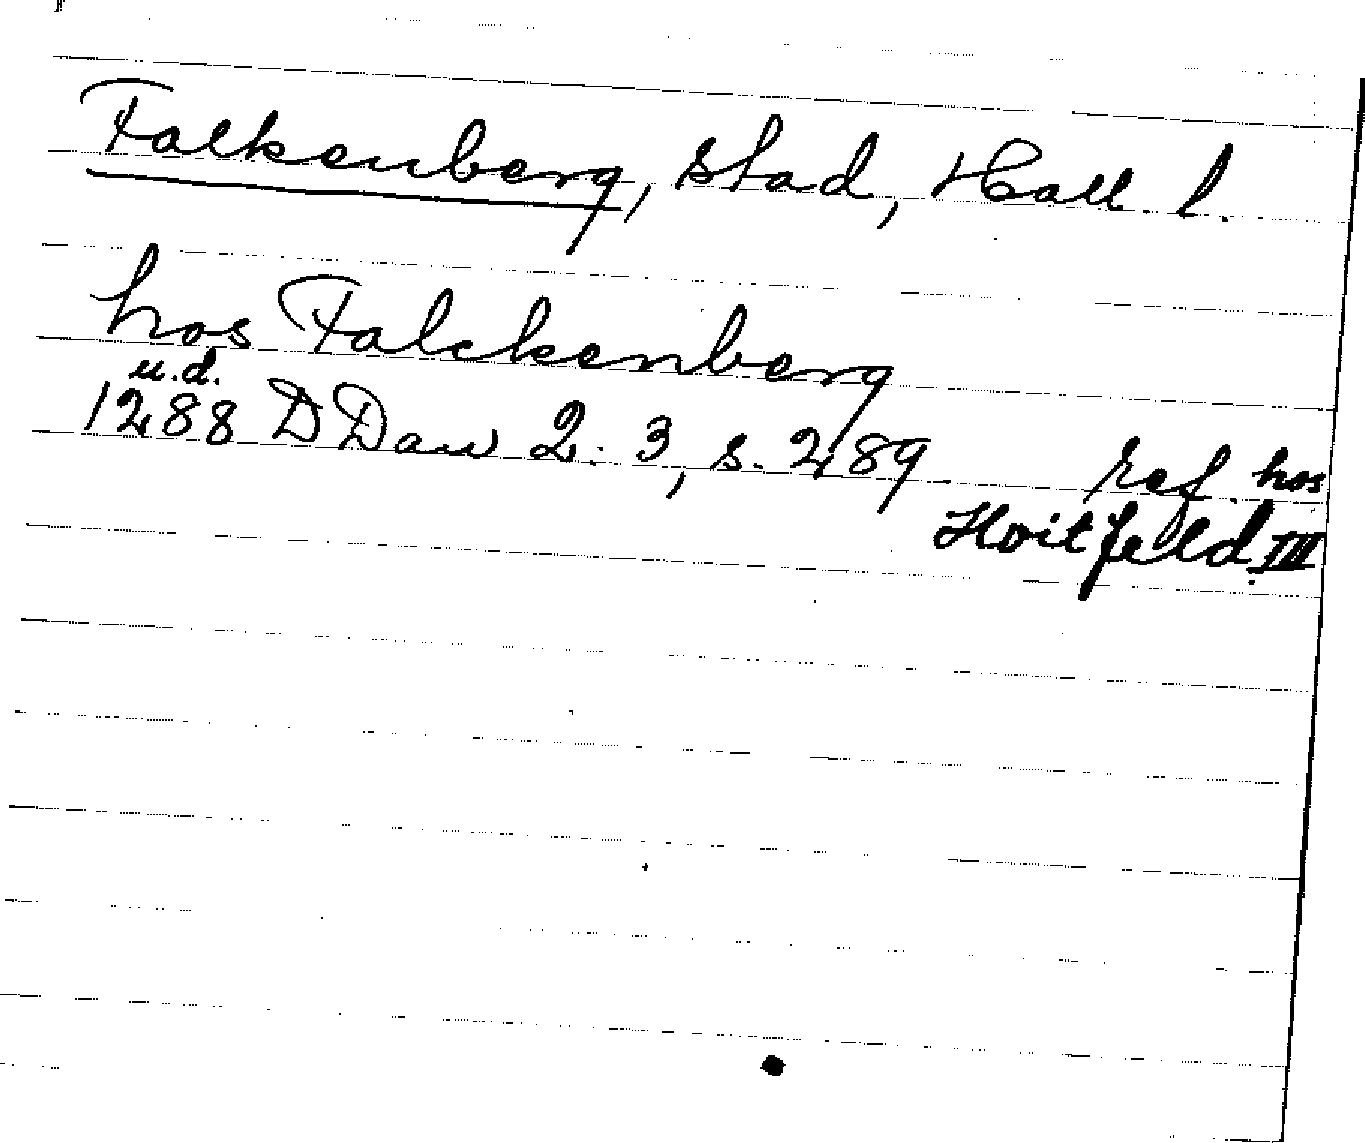 Falkenberg, stad, Hall. l.
hos Falckenberg
u.d.
1288 DDan 2:3, s. 289 ref. hos
Hvitfeld III